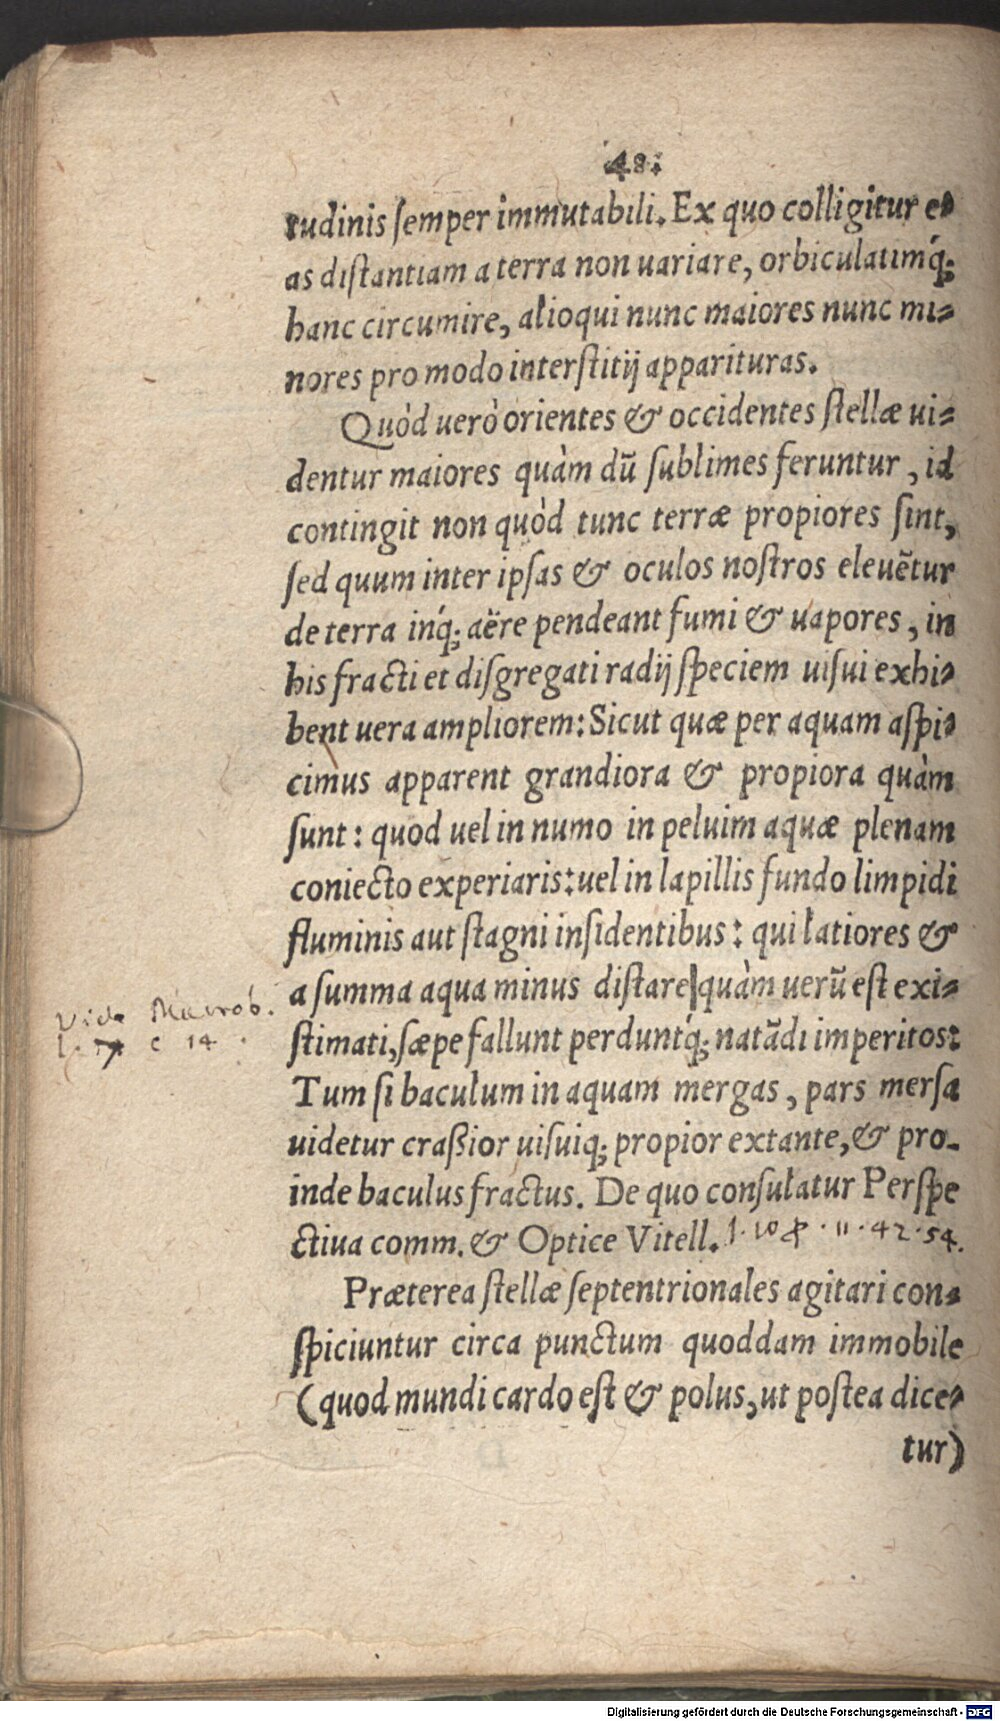 48.
tudinis ſemper immutabili. Ex quo colligitur e⸗
as diſtantiam a terra non uariare, orbiculatimq́;
hanc circumire, alioqui nunc maiores nunc mi⸗
nores pro modo interſtitij apparituras.
Quòd uerò orientes & occidentes ſtellæ ui⸗
dentur maiores quàm dū ſublimes feruntur, id
contingit non quòd tunc terræ propiores ſint,
ſed quum inter ipſas & oculos noſtros eleuētur
de terra inq́; aëre pendeant fumi & uapores, in
his fracti et diſgregati radij ſpeciem uiſui exhi⸗
bent uera ampliorem: Sicut quæ per aquam aſpi⸗
cimus apparent grandiora & propiora quàm
ſunt: quod uel in numo in peluim aquæ plenam
coniecto experiaris: uel in lapillis fundo limpidi
fluminis aut ſtagni inſidentibus: qui latiores &
a ſumma aqua minus diſtare|quàm uerū est exi⸗
Vide Macrob.
ſtimati, ſæpe fallunt perduntq́; natādi imperitos:
l. 7 c 14.
Tum ſi baculum in aquam mergas, pars merſa
uidetur craßior uiſuiq; propior extante, & pro-
inde baculus fractus. De quo conſulatur Perſpe
ctiua comm. & Optice Vitell. l. 10 p. 11. 42. 54.
Præterea ſtellæ ſeptentrionales agitari con⸗
ſpiciuntur circa punctum quoddam immobile
(quod mundi cardo eſt & polus, ut poſtea dice⸗
tur)
Digitalisierung gefördert durch die Deutsche Forschungsgemeinschaft - DFG